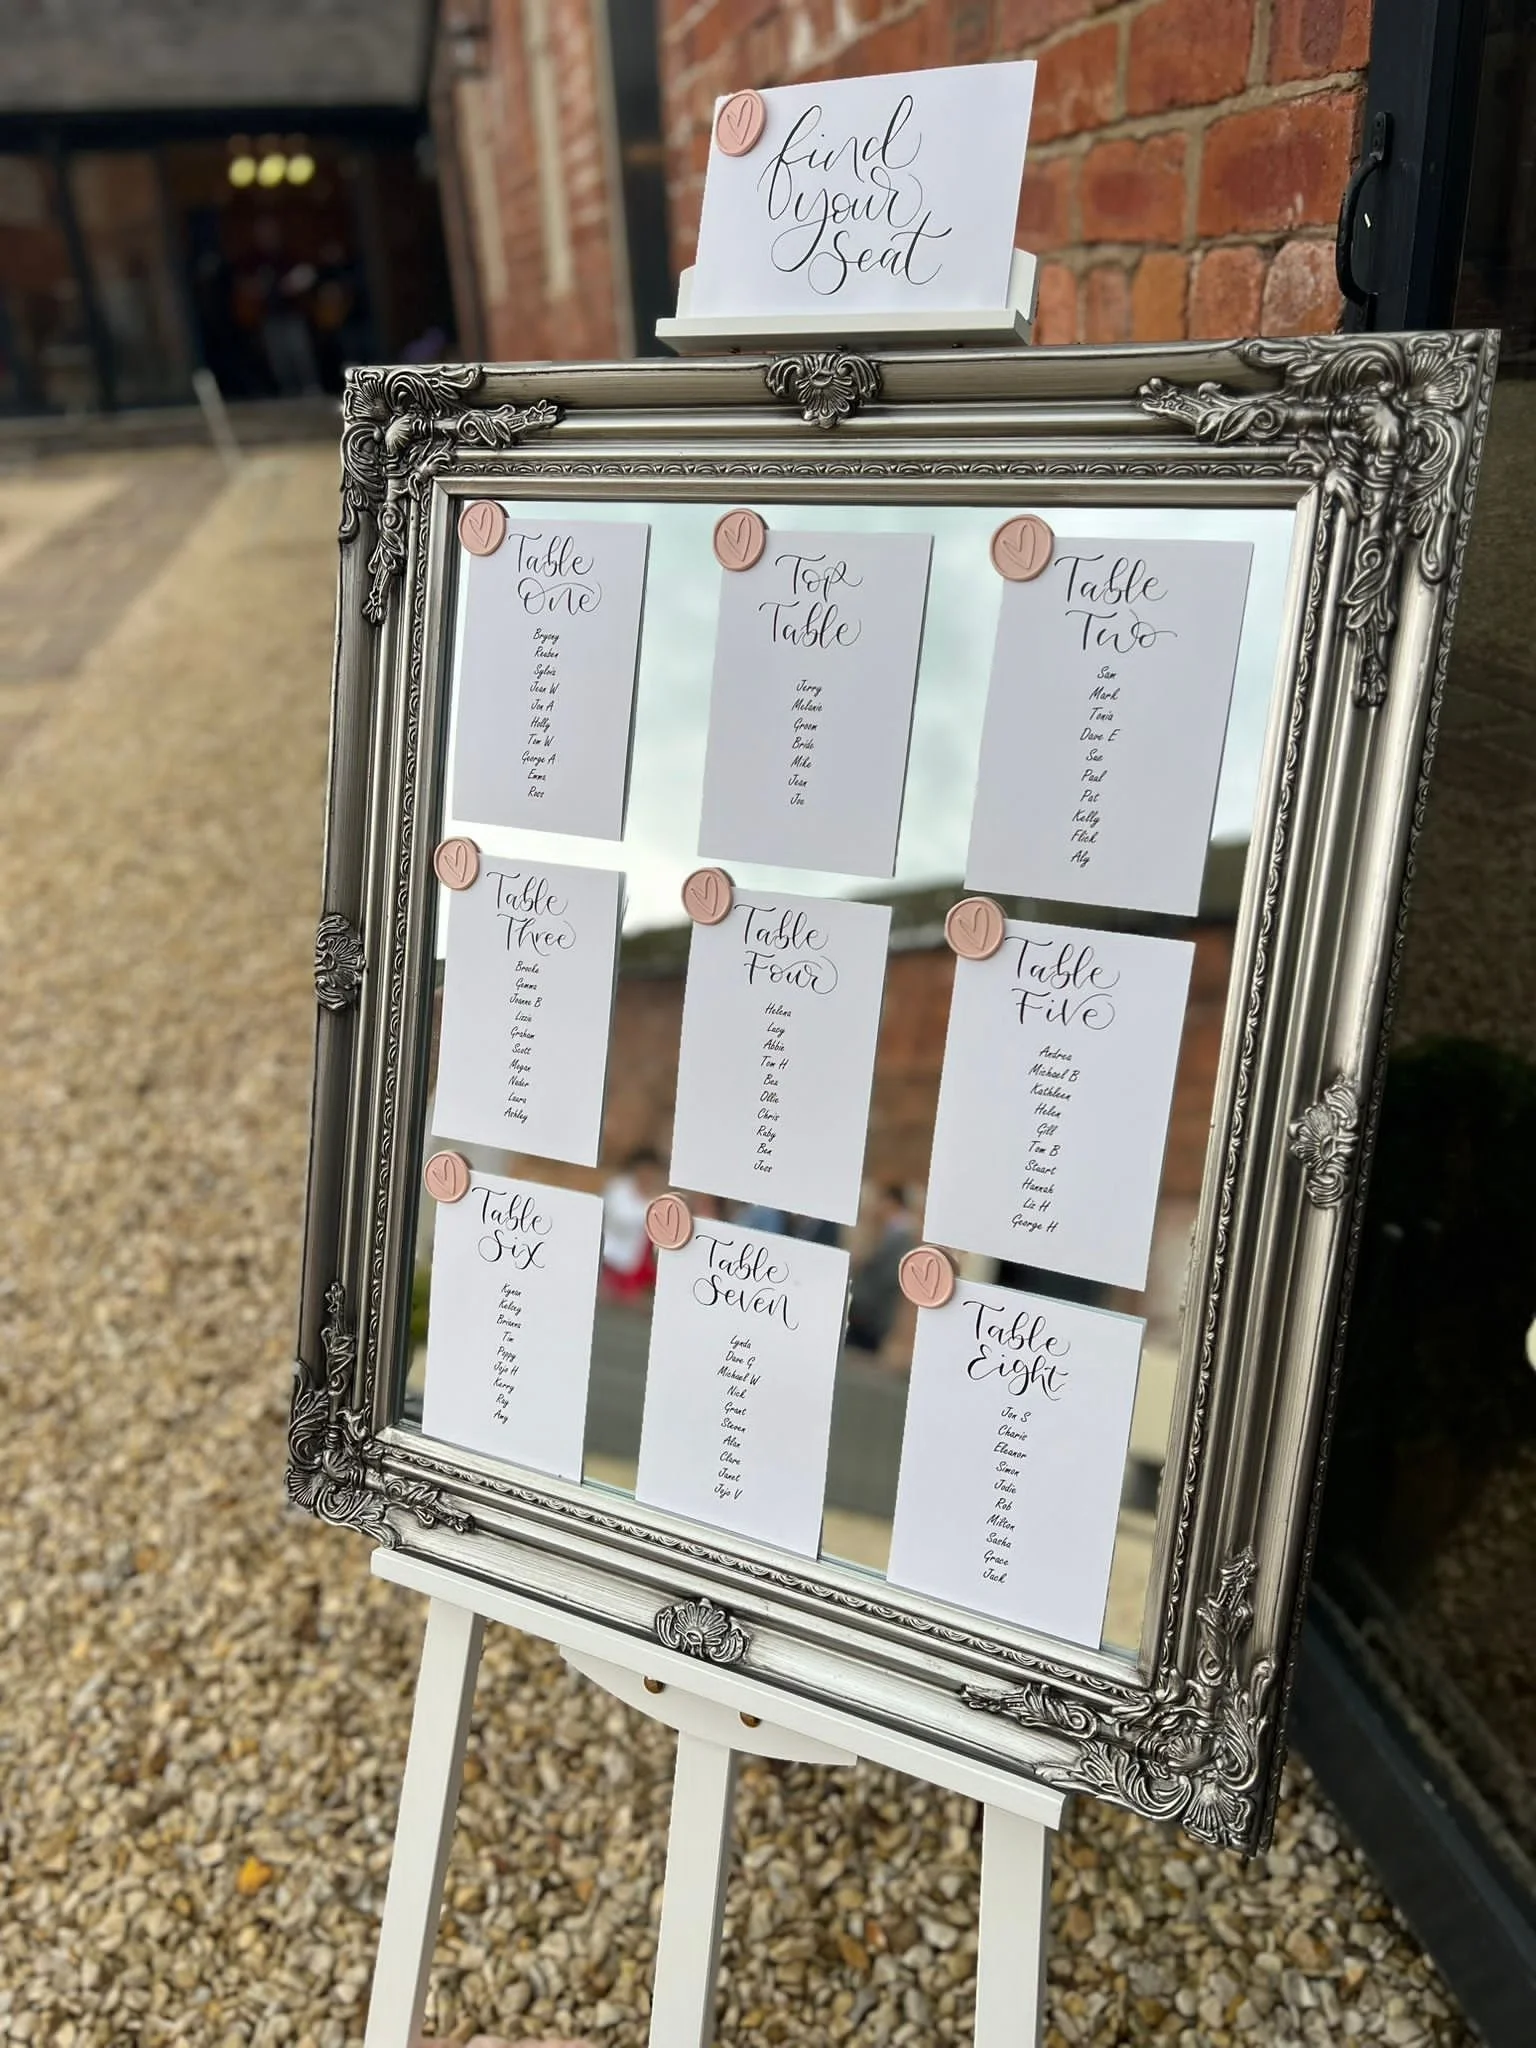 find
your
seat
Table
One
Bryony
Reuben
Sylvia
Jean W
Jon A
Holly
Tom W
George A
Emma
Ross
Top
Table
Jerry
Melanie
Groom
Bride
Mike
Jean
Joe
Table
Two
Sam
Mark
Tonia
Dave E
Sue
Paul
Pat
Kelly
Flick
Aly
Table
Three
Brooke
Gemma
Joanne B
Lizzie
Graham
Scott
Megan
Nader
Laura
Ashley
Table
Four
Helena
Lucy
Abbie
Tom H
Bea
Ollie
Chris
Ruby
Ben
Jess
Table
Five
Andrea
Michael B
Kathleen
Helen
Gill
Tom B
Stuart
Hannah
Liz H
George H
Table
Six
Kynan
Kelsey
Brianna
Tim
Poppy
Jojo H
Kerry
Ray
Amy
Table
Seven
Lynda
Dave G
Michael W
Nick
Grant
Steven
Alan
Clare
Janet
Jojo V
Table
Eight
Jon S
Charis
Eleanor
Simon
Jodie
Rob
Milton
Sasha
Grace
Jack